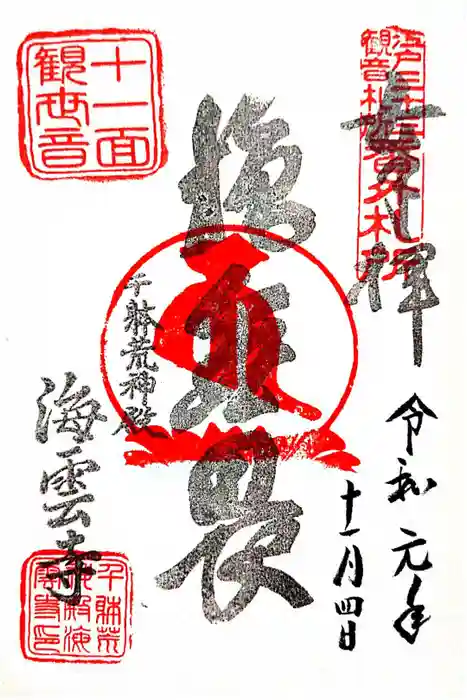 奉拝
江戸三十三
観音札所
番外札所
令和元年
十一月四日
十一面
観世音
千躰荒神殿
海雲寺
千躰荒
神殿海
雲寺印